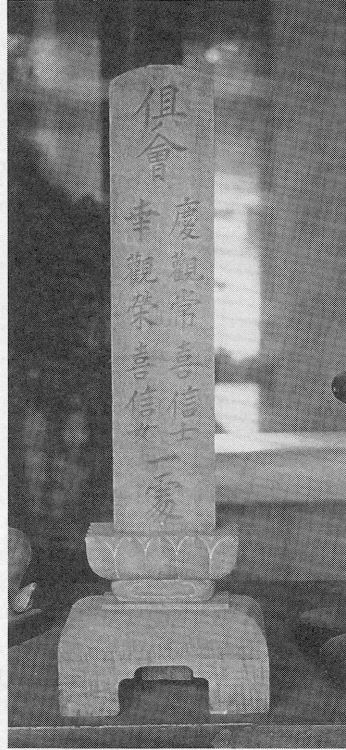 俱會
慶觀常喜信士
幸觀榮喜信女
一處